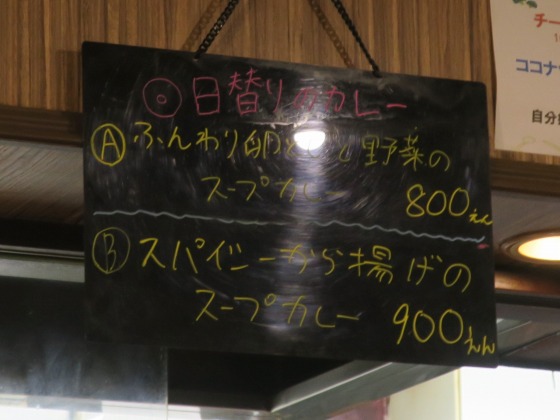 ◎日替りカレー
Ⓐふんわり卵と野菜の
スープカレー 800えん
Ⓑスパイシーから揚げの
スープカレー 900えん
チー
ココナ
自分